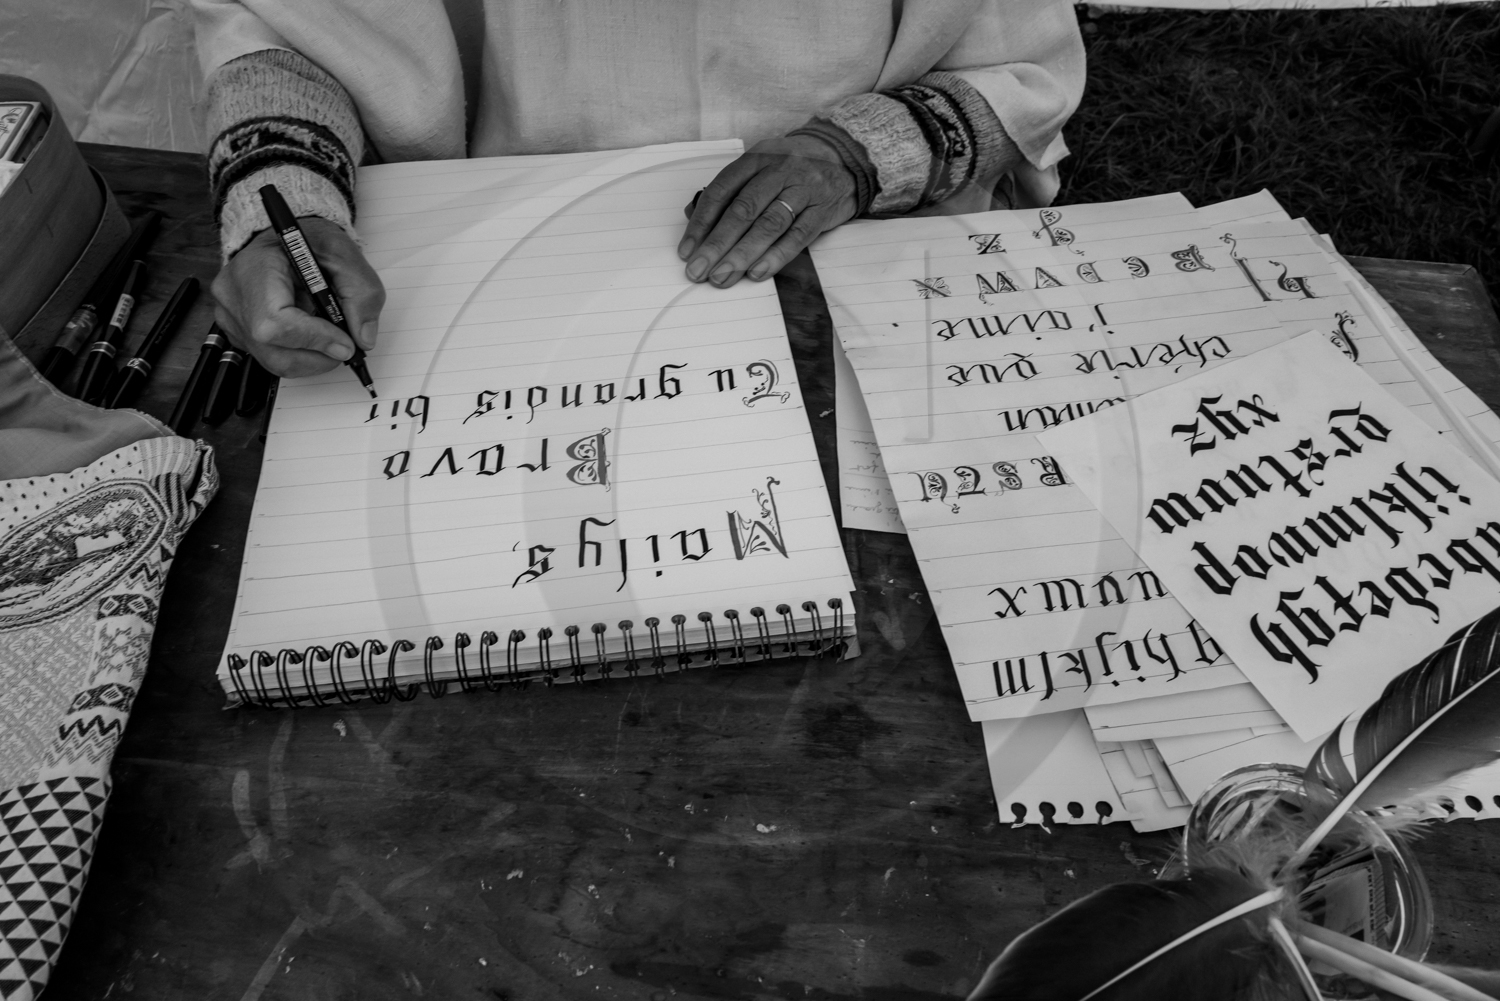 Nailys,
Bravo
Tu grandis bi
abcdefgh
ijklmnop
qrstuvw
xyz
ghijklm
uvwx
RSTU
maman
chérie que
j'aime
B C D V W X
Z